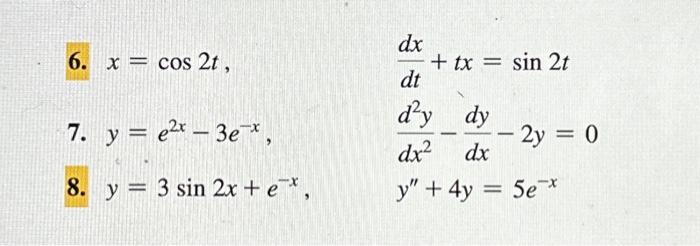 6. x = cos 2t, dx/dt + tx = sin 2t
7. y = e^{2x} − 3e^{−x}, d²y/dx² − dy/dx − 2y = 0
8. y = 3 sin 2x + e^{−x}, y″ + 4y = 5e^{−x}